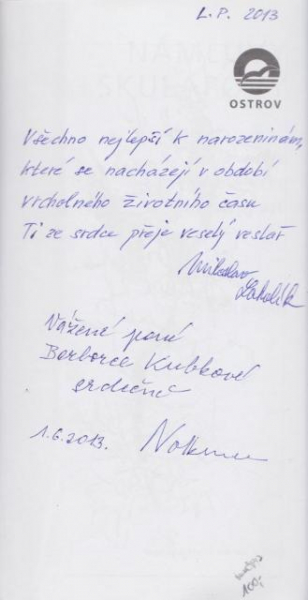 L.P. 2013
OSTROV
Všechno nejlepší k narozeninám,
které se nacházejí v období
vrcholného životního času
Ti ze srdce přeje veselý veslař
Miloslav
Vážené paní
Barborce Kubkové
srdečně
1.6.2013.
100,-